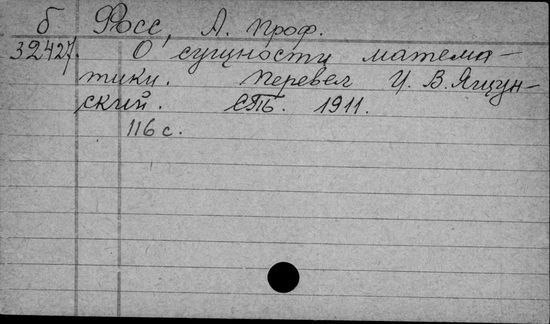 б Фосс, А. проф.
32427. О сущности матема-
тики. Перевел И. В. Яшун-
ский. СПБ. 1911.
116 с.